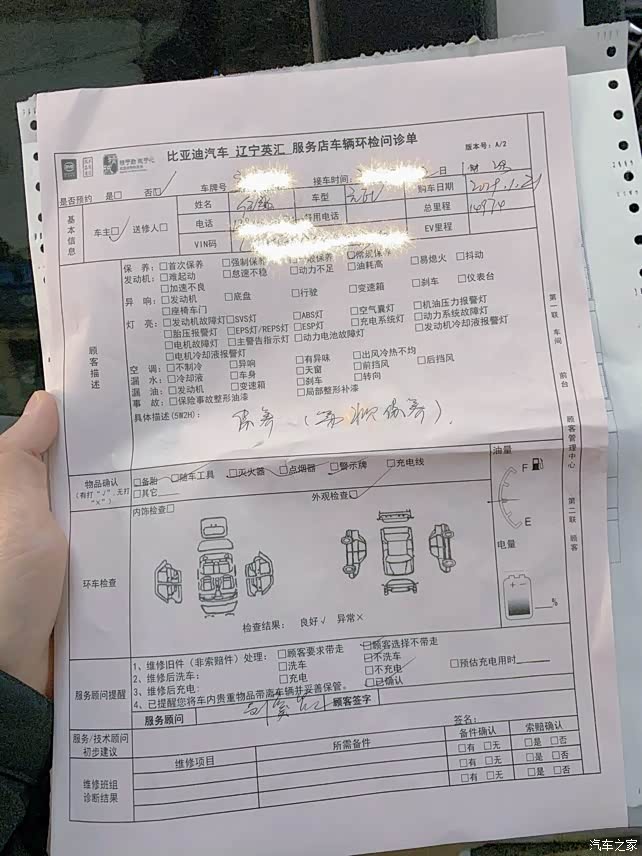 比亚迪汽车 辽宁英汇 服务店车辆环检问诊单
版本号：A/2
是否预约 是□ 否□ 车牌号 接车时间 日
基本信息
车主□ 送修人□
姓名 车型 购车日期
电话 备用电话 总里程 14974
VIN码 EV里程
顾客描述
保 养：□首次保养 □强制保养 □常规保养
发动机：□难起动 □怠速不稳 □动力不足 □油耗高 □易熄火 □抖动
□加速不良
异 响：□发动机 □底盘 □行驶 □变速箱 □刹车 □仪表台
□座椅车门
灯 亮：□发动机故障灯 □SVS灯 □ABS灯 □空气囊灯 □机油压力报警灯
□胎压报警灯 □EPS灯/REPS灯 □ESP灯 □充电系统灯 □动力系统故障灯
□电机故障灯 □主警告指示灯 □动力电池故障灯 □发动机冷却液报警灯
□电机冷却液报警灯
空 调：□不制冷 □异响 □有异味 □出风冷热不均
漏 水：□冷却液 □车身 □天窗 □前挡风 □后挡风
漏 油：□发动机 □变速箱 □刹车 □转向
事 故：□保险事故整形油漆 □局部整形补漆
具体描述(5W2H)： 保养
物品确认
（有打“√”,无打“×”）
□备胎 □随车工具 □灭火器 □点烟器 □警示牌 □充电线
□其它
环车检查
内饰检查□ 外观检查□
检查结果： 良好√ 异常×
油量
F
E
电量
+ −
%
服务顾问提醒
1、维修旧件（非索赔件）处理： □顾客要求带走 □顾客选择不带走
2、维修后洗车： □洗车 □不洗车
3、维修后充电： □充电 □不充电 □预估充电用时
4、已提醒您将车内贵重物品带离车辆并妥善保管。 □已确认
服务顾问 顾客签字
服务/技术顾问初步建议
签名：
维修班组诊断结果
维修项目 所需备件 备件确认 索赔确认
□有 □无 □是 □否
□有 □无 □是 □否
□有 □无 □是 □否
第一联 车间 前台 顾客管理中心 第二联 顾客
汽车之家